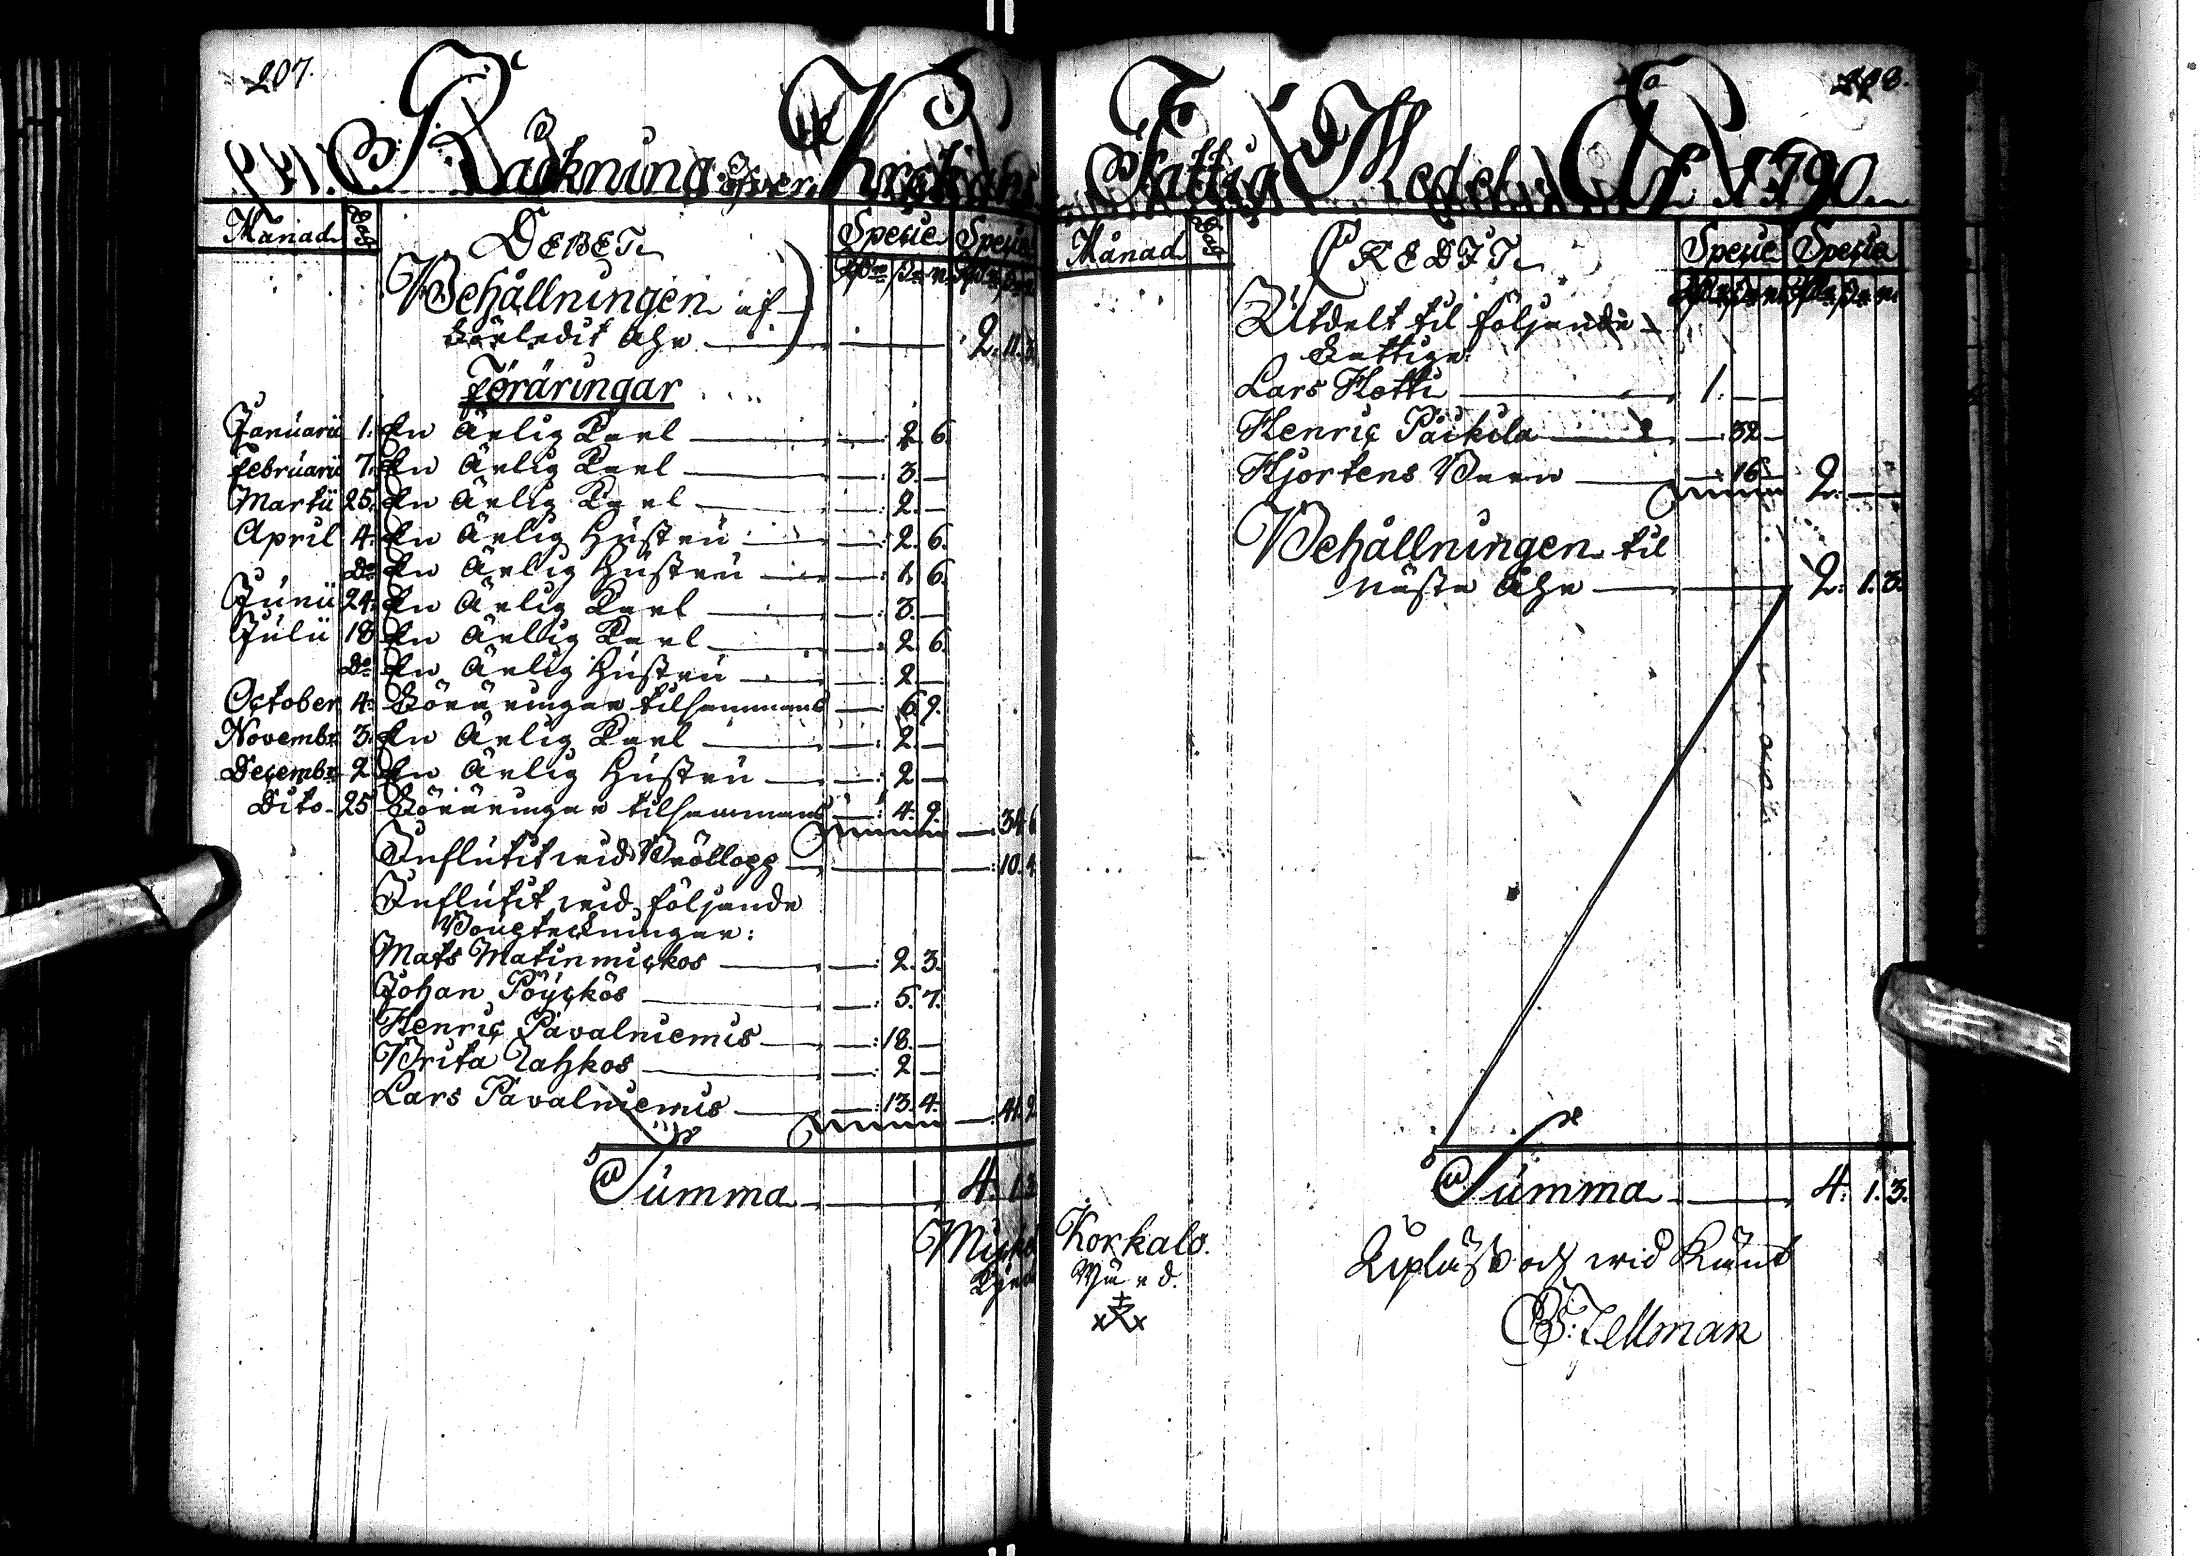 207.
Räckning öfver Kyrckians
Månad Dag DEBET. Specie Specie
Behållningen af
förledit Åhr 2. 11. 3.
Föräringar
Januarii 1. En Ärlig Karl —: 2. 6.
Februarii 7. En Ärlig Karl —: 3. —
Martii 25. En Ärlig Karl —: 2. —
April 4. En Ärlig Hustru —: 2. 6.
Do En Ärlig Hustru —: 1. 6.
Junii 24. En Ärlig Karl —: 3. —
Julii 18 En Ärlig Karl —: 2. 6.
Do En Ärlig Hustru —: 2. —
October 4. Föräringar tilsammans —: 6. 9.
Novembr 3. En Ärlig Karl —: 2. —
Decembr 2 En Ärlig Hustru —: 2. —
Dito 25 Föräringar tilsammans —: 4. 9. —: 34. 6
Influtit wid Bröllopp —: 10. 4
Influtit wid följande
Mats Matinmickos —: 2. 3.
Johan Pöyckös —: 5. 7.
Henric Pavalniemis —: 18. —
Brita Zahkos —: 2 —
Lars Pavalniemis —: 13. 4. —: 41. 2
Summa 4. 1. 3
208.
Fattig Medel A:o 1790
Månad Dag CREDIT. Specie Specie
Utdelt til följande
Fattige:
Lars Hotti 1. — —
Henric Päikilä —: 32 —
Hjortens Barn —: 16 — 2. — —
Behållningen til
nästa Åhr 2. 1. 3.
Summa 4. 1. 3.
Mickel Korkalo.
Kyrcko Wärd.
Upläst och wid Kiänt
E: Zellman